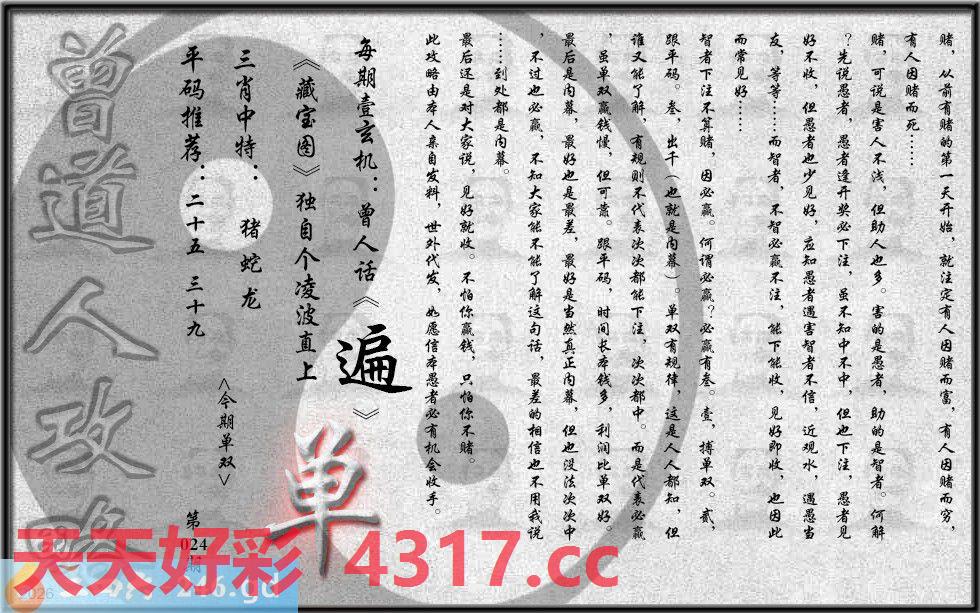 赌，从前有赌的第一天开始，就注定有人因赌而富，有人因赌而穷，
有人因赌而死……
赌，可说是害人不浅，但助人也多。害的是愚者，助的是智者。何解
？先说愚者，愚者逢开奖必下注，虽不知中不中，但也下注，愚者见
好不收，但愚者也少见好，应知愚者遇害智者不信，近观水，遇愚当
友，等等……而智者，不智必赢不注，能下能收，见好即收，也因此
而常见好……
智者下注不算赌，因必赢。何谓必赢？必赢有叁。壹，搏单双。贰，
跟平码。叁，出千（也就是内幕）。单双有规律，这是人人都知，但
谁又能了解，有规则不代表次次都能下注，次次都中。而是代表必赢
，虽单双赢钱慢，但可靠。跟平码，时间长本钱多，利润比单双好。
最后是内幕，最好也是最差，最好是当然真正内幕，但也没法次次中
，不过也必赢，不知大家能不能了解这句话，最差的相信也不用我说
……到处都是内幕。
最后还是对大家说，见好就收。不怕你赢钱，只怕你不赌。
此攻略由本人亲自发料，世外代发，如愿信本愚者必有机会收手。
每期壹玄机：曾人话《遍》
《藏宝图》独自个凌波直上
单
三肖中特：猪蛇龙
<今期单双>
平码推荐：二十五 三十九
第
024
期
曾道人攻略
天天好彩 4317.cc